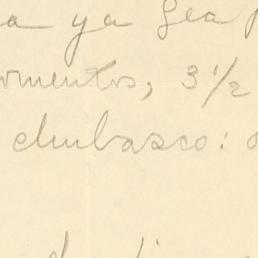 a ya sea
omentos, 3 1/2
chubasco: